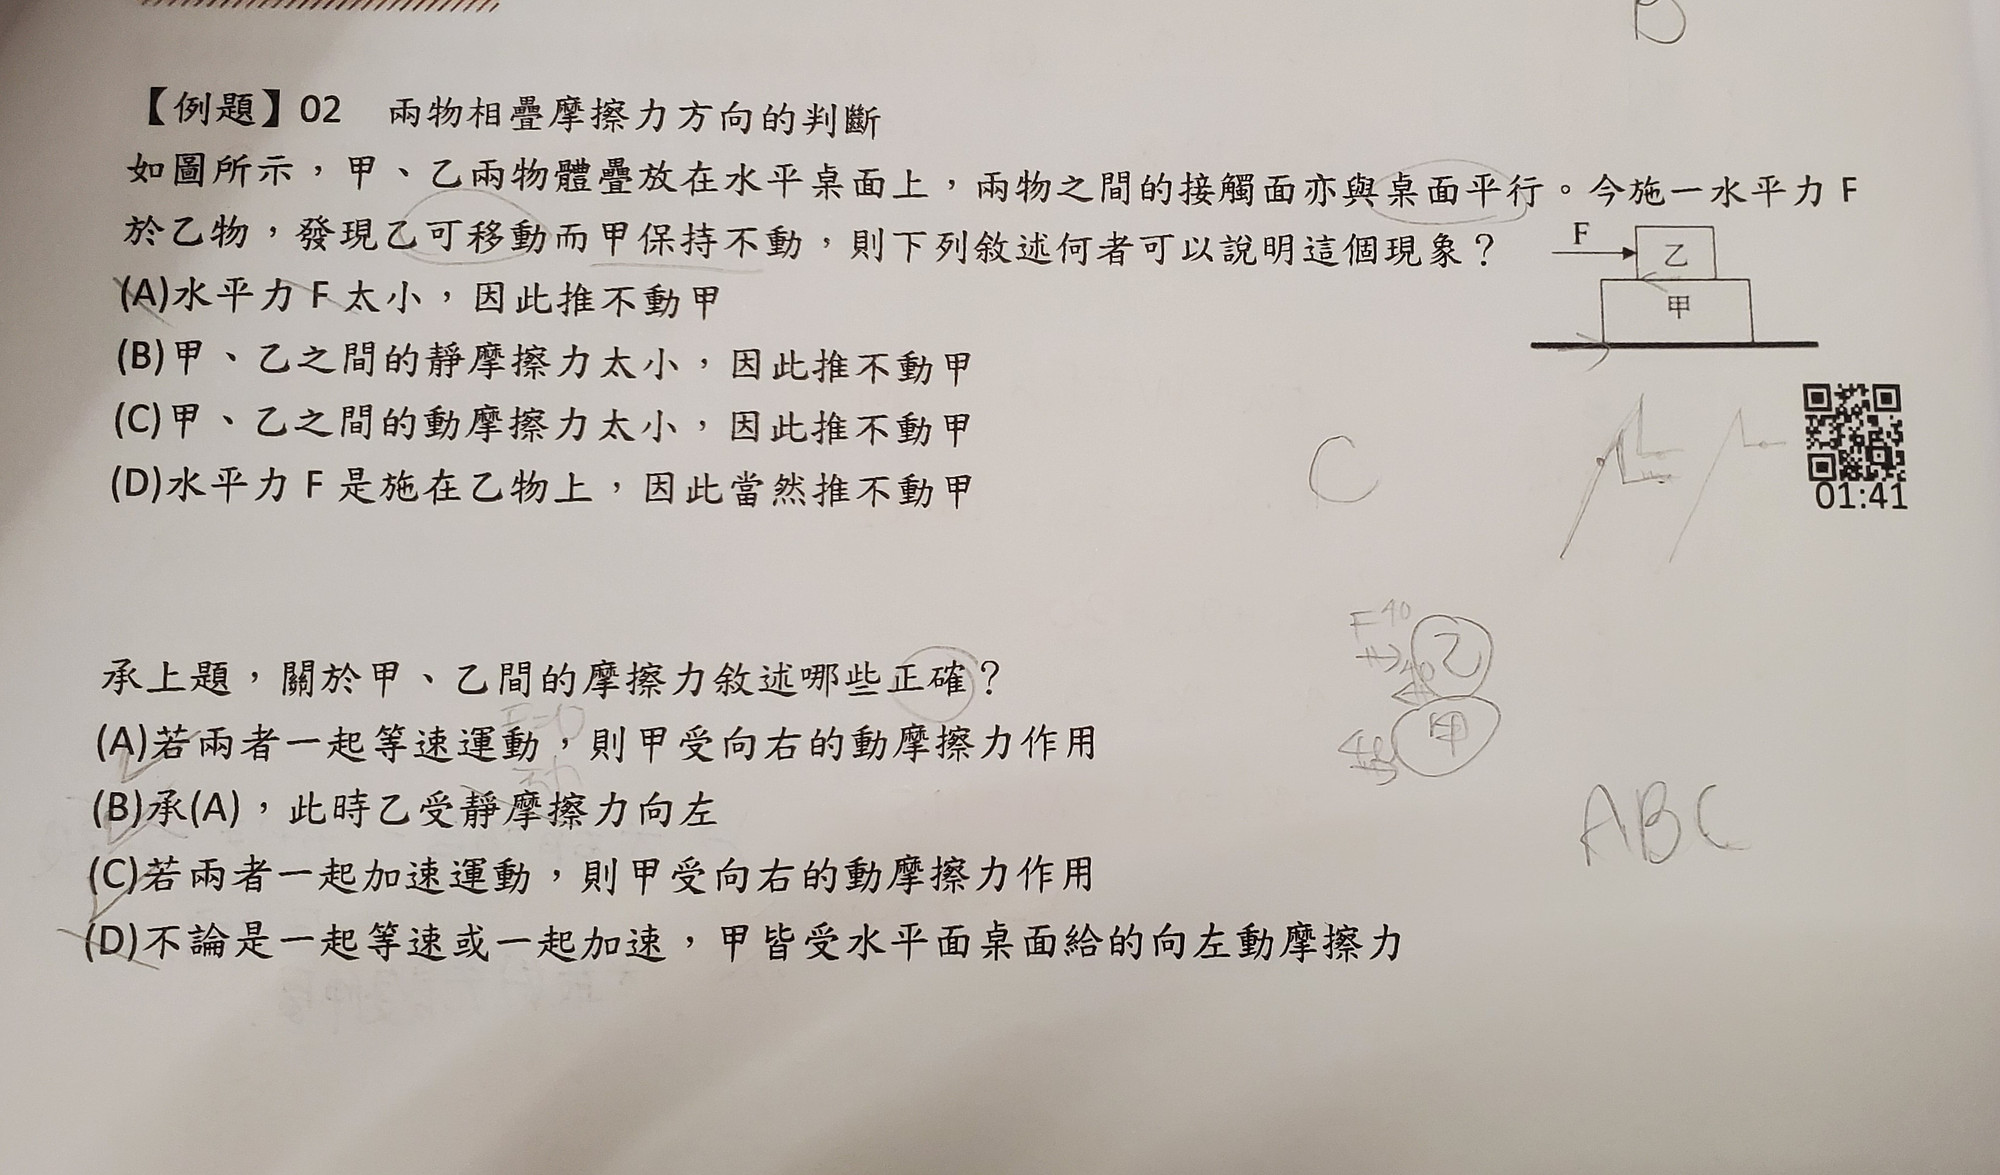 B
【例題】02 兩物相疊摩擦力方向的判斷
如圖所示，甲、乙兩物體疊放在水平桌面上，兩物之間的接觸面亦與桌面平行。今施一水平力 F
於乙物，發現乙可移動而甲保持不動，則下列敘述何者可以說明這個現象？
F
乙
甲
(A)水平力 F 太小，因此推不動甲
(B)甲、乙之間的靜摩擦力太小，因此推不動甲
(C)甲、乙之間的動摩擦力太小，因此推不動甲
(D)水平力 F 是施在乙物上，因此當然推不動甲
C
01:41
F 40
乙
40
甲
承上題，關於甲、乙間的摩擦力敘述哪些正確？
F=0
(A)若兩者一起等速運動，則甲受向右的動摩擦力作用
(B)承(A)，此時乙受靜摩擦力向左
(C)若兩者一起加速運動，則甲受向右的動摩擦力作用
(D)不論是一起等速或一起加速，甲皆受水平面桌面給的向左動摩擦力
ABC